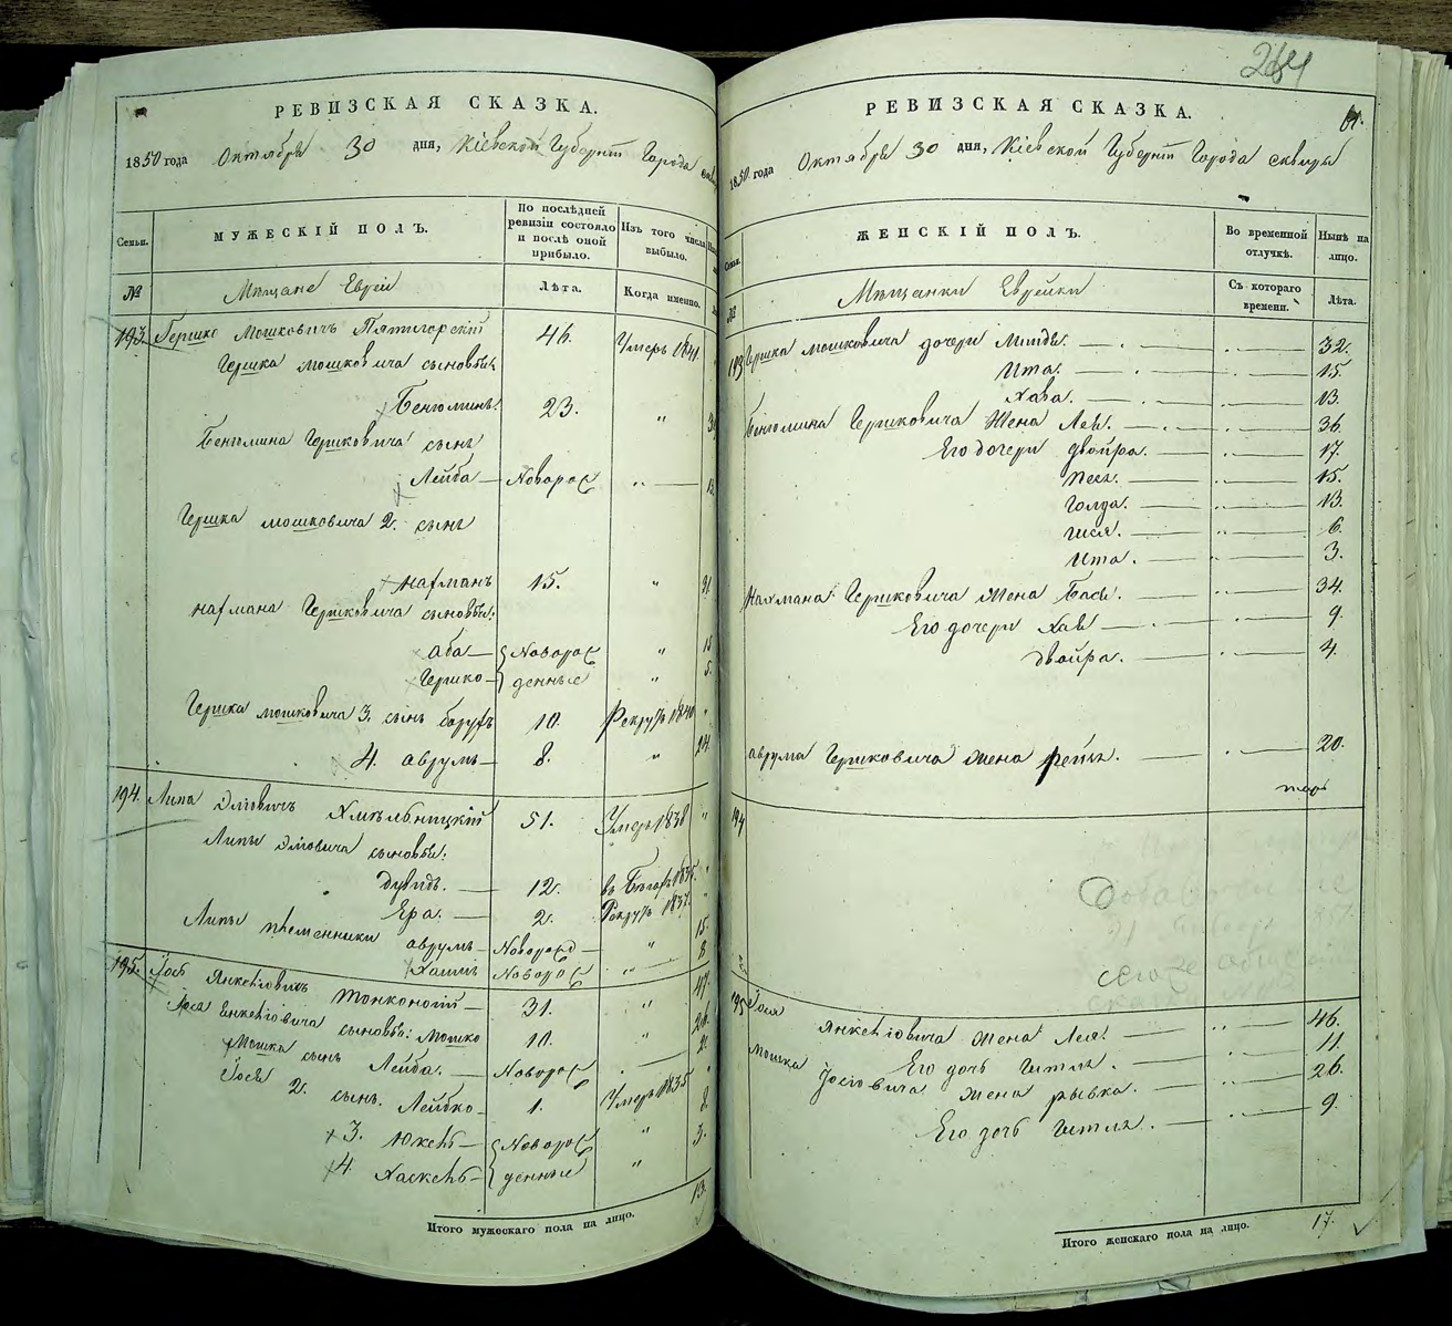 РЕВИЗСКАЯ СКАЗКА.
1850 года Октября 30 дня, Кіевской Губерніи Города
Семьи. МУЖЕСКІЙ ПОЛЪ. По послѣдней ревизіи состояло и послѣ оной прибыло. Изъ того числа выбыло.
№ Мѣщане Евреи Лѣта. Когда именно.
193. Гершко Мошковичъ Пятигорскій 46. Умеръ 1841.
Гершка Мошковича сыновья
Беніоминъ. 23. "
Беніомина Гершковича сынъ
Лейба — Новорож "
Гершка Мошковича 2. сынъ
Нахманъ 15. " 31
Нахмана Гершковича сыновья:
Аба — Новорож "
Гершко — денные " 5.
Гершка Мошковича 3. сынъ Борухъ 10. Рекрутъ 1840 "
4. Аврумъ — 8. " 24.
194. Липа Эліовичъ Хмѣльницкій 51. Умеръ 1838 "
Липы Эліовича сыновья:
Дувидъ. — 12. въ Бѣгахъ 1835. "
Ера. — 2. Рекрутъ 1837. "
Липы племенники Аврумъ — Новорожд — " 15.
Хаимъ Новорож " 8
195. Іось Янкеліовичъ Тонконогій — 31. " 47.
Іося Янкеліовича сыновья: Мошко 10. " 26.
Мошка сынъ Лейба. — Новорож — 2.
Іося 2. сынъ. Лейбко — 1. Умеръ 1835 "
3. Юкель — Новорож " 8.
4. Хаскель — денные " 3.
Итого мужескаго пола на лицо. 13.
264
61.
РЕВИЗСКАЯ СКАЗКА.
1850 года Октября 30 дня, Кіевской Губерніи Города Сквиры
Семьи. ЖЕНСКІЙ ПОЛЪ. Во временной отлучкѣ. Нынѣ на лицо.
№ Мѣщанки Еврейки Съ котораго времени. Лѣта.
193 Гершка Мошковича дочери Минда. — 32.
Ита. — 15.
Хава. — 13.
Беніомина Гершковича жена Лея. — 36.
Его дочери Двойра. — 17.
Песя. — 15.
Голда. — 13.
Гися. — 6.
Ита. — 3.
Нахмана Гершковича жена Бася. — 34.
Его дочери Хая — 9.
Двойра. — 4.
Аврума Гершковича жена Рейза. — 20.
194
195 Іося Янкеліовича жена Лея. — 46.
Его дочь Гитля. — 11.
Мошка Іосіовича жена Рывка. — 26.
Его дочь Гитля. — 9.
Итого женскаго пола на лицо. 17.